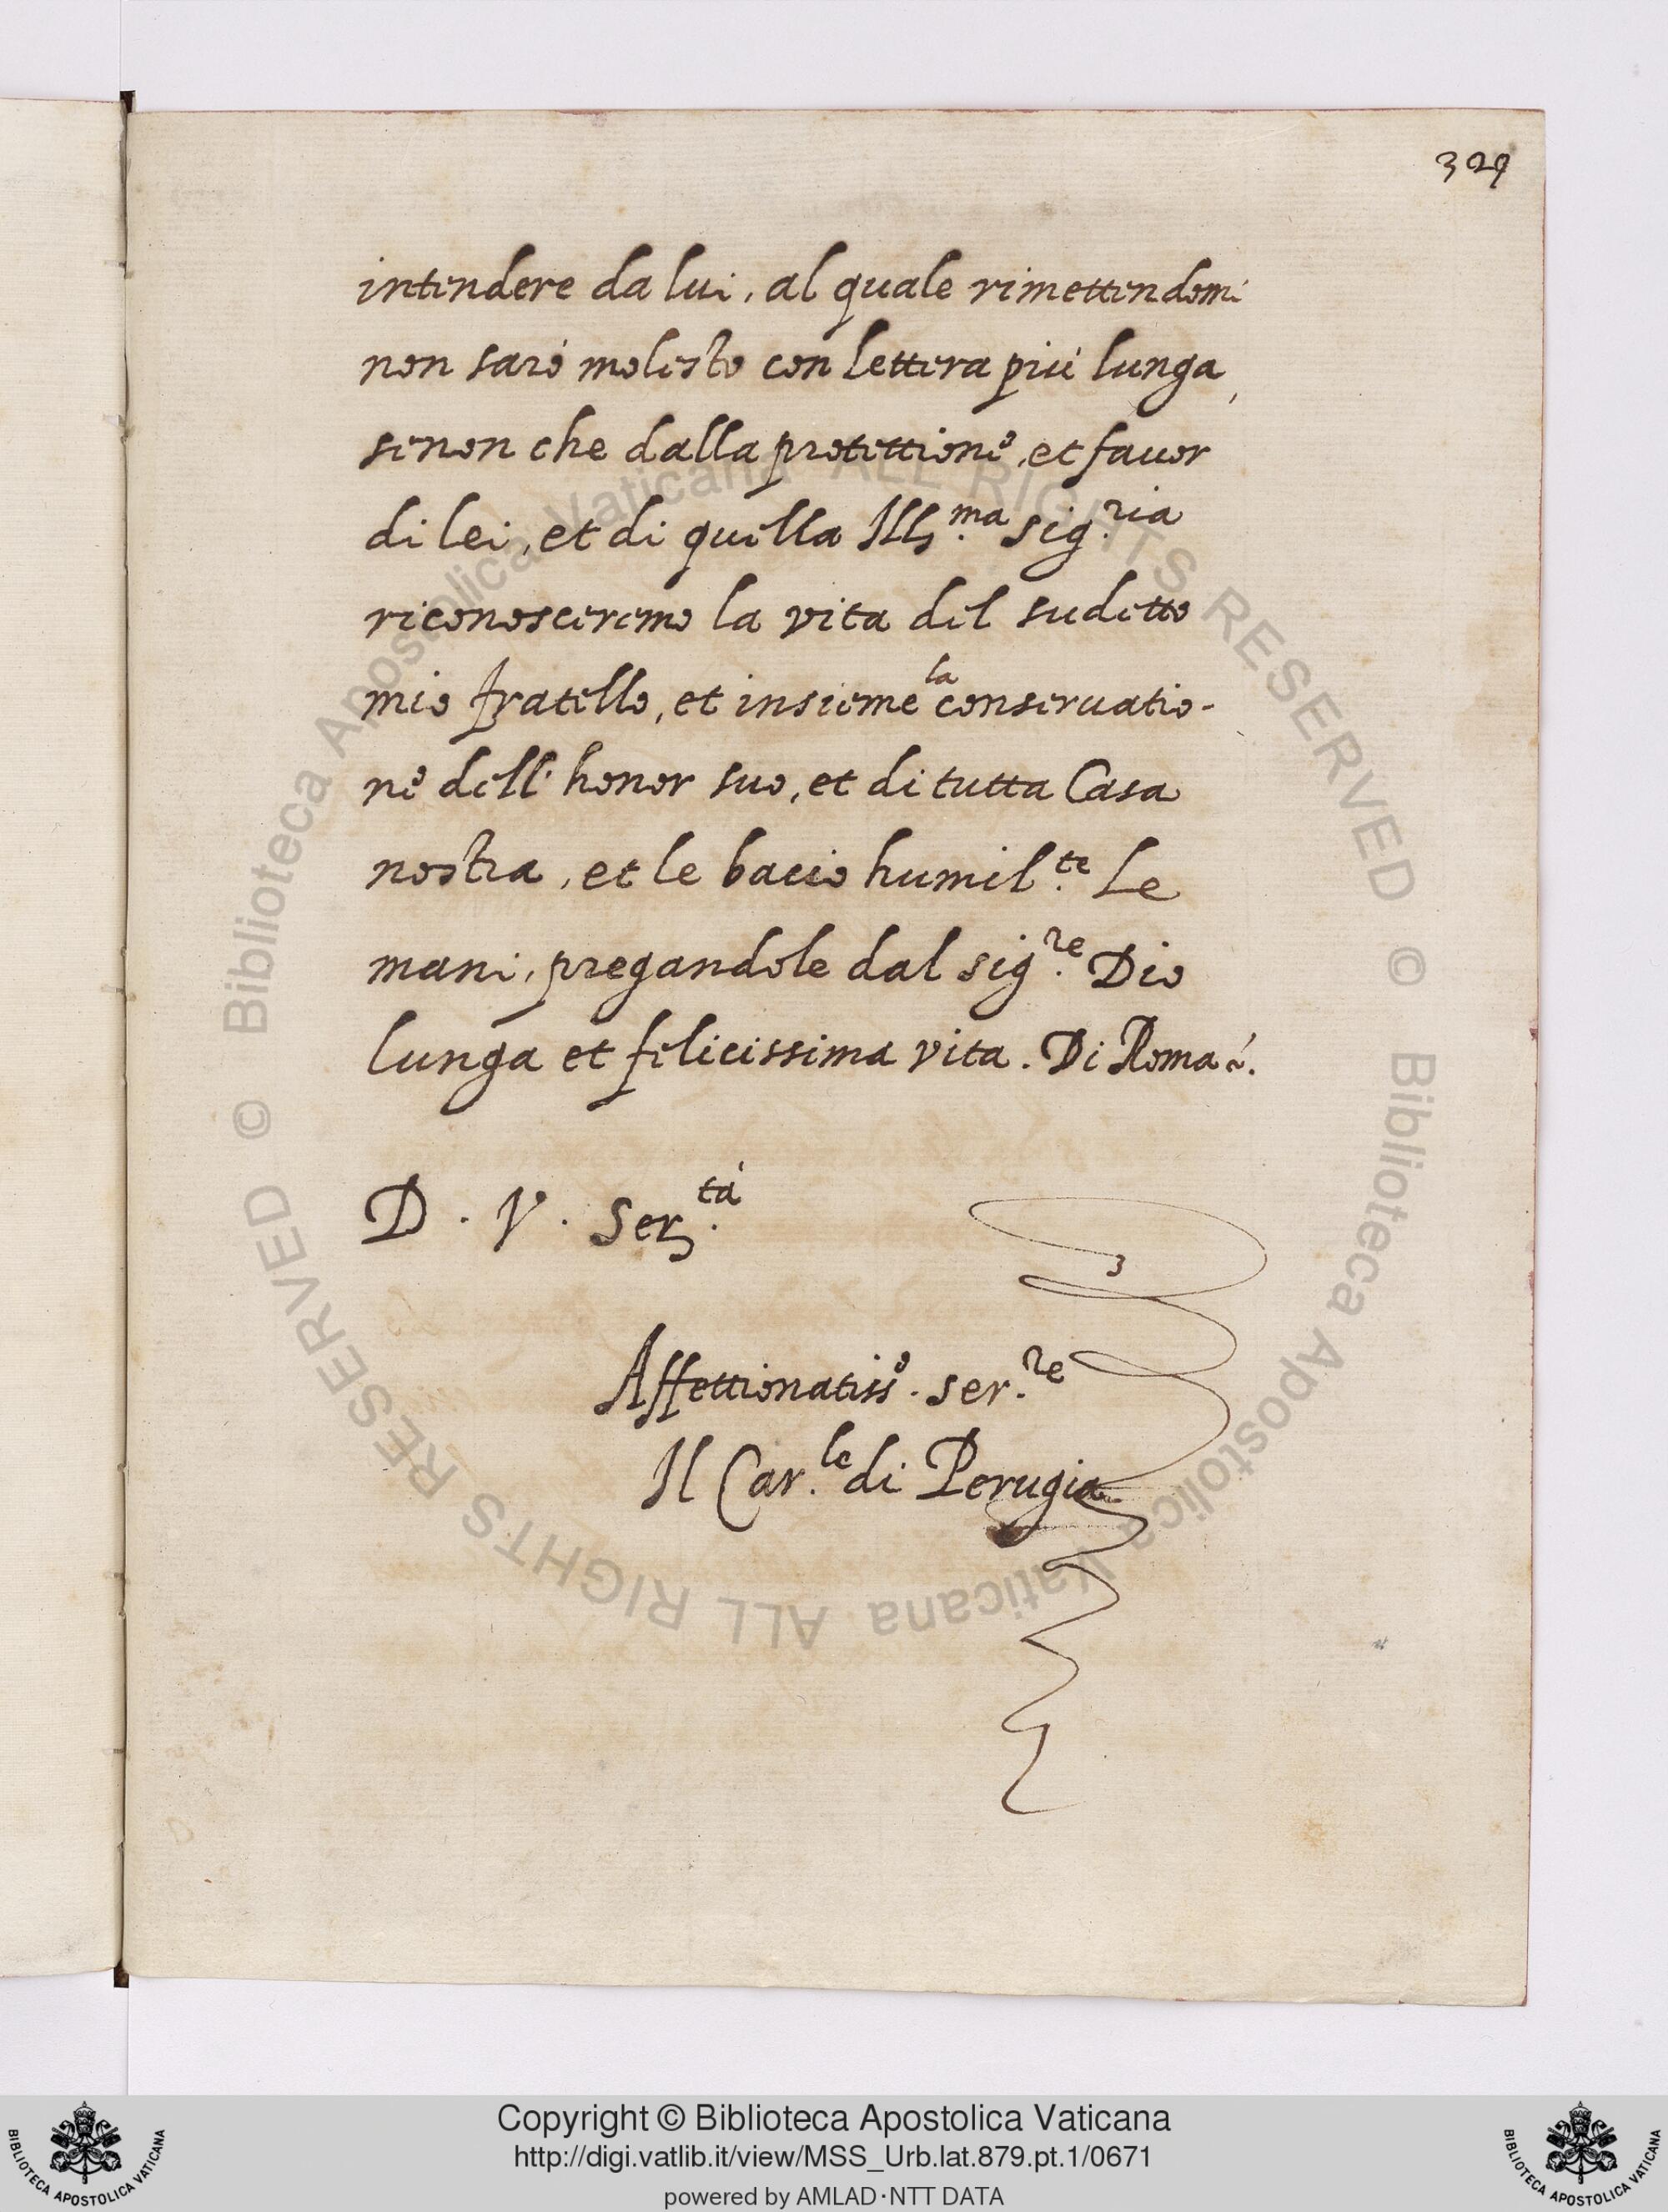 329
intendere da lui, al quale rimettendomi
non sarò molesto con lettera più lunga,
senon che dalla protettione, et favor
di lei, et di quella Ill.ma sig.ria
riconosceremo la vita del sudetto
mio fratello, et insieme la conseruatio-
ne dell' honor suo, et di tutta Casa
nostra, et le bacio humil.te Le
mani, pregandole dal sig.re Dio
lunga et felicissima vita. Di Roma
D. V. Ser.tà
Affettionatiss.o ser.re
Il Car.le di Perugia
Copyright © Biblioteca Apostolica Vaticana
http://digi.vatlib.it/view/MSS_Urb.lat.879.pt.1/0671
powered by AMLAD·NTT DATA
BIBLIOTECA APOSTOLICA VATICANA
BIBLIOTECA APOSTOLICA VATICANA
© Biblioteca Apostolica Vaticana ALL RIGHTS RESERVED
© Biblioteca Apostolica Vaticana ALL RIGHTS RESERVED